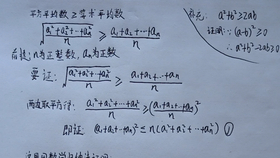 平方平均数≥算术平均数
√((a₁²+a₂²+…+aₙ²)/n) ≥ (a₁+a₂+…+aₙ)/n
n为正整数, aₙ为正数
要证: √((a₁²+a₂²+…+aₙ²)/n) ≥ (a₁+a₂+…+aₙ)/n
两边取平方得: (a₁²+a₂²+…+aₙ²)/n ≥ (a₁+a₂+…+aₙ)²/n²
即证: (a₁+a₂+…aₙ)² ≤ n(a₁²+a₂²+…aₙ²) ①
补充: a²+b²≥2ab
证明: (a-b)²≥0
∴ a²+b²-2ab≥0